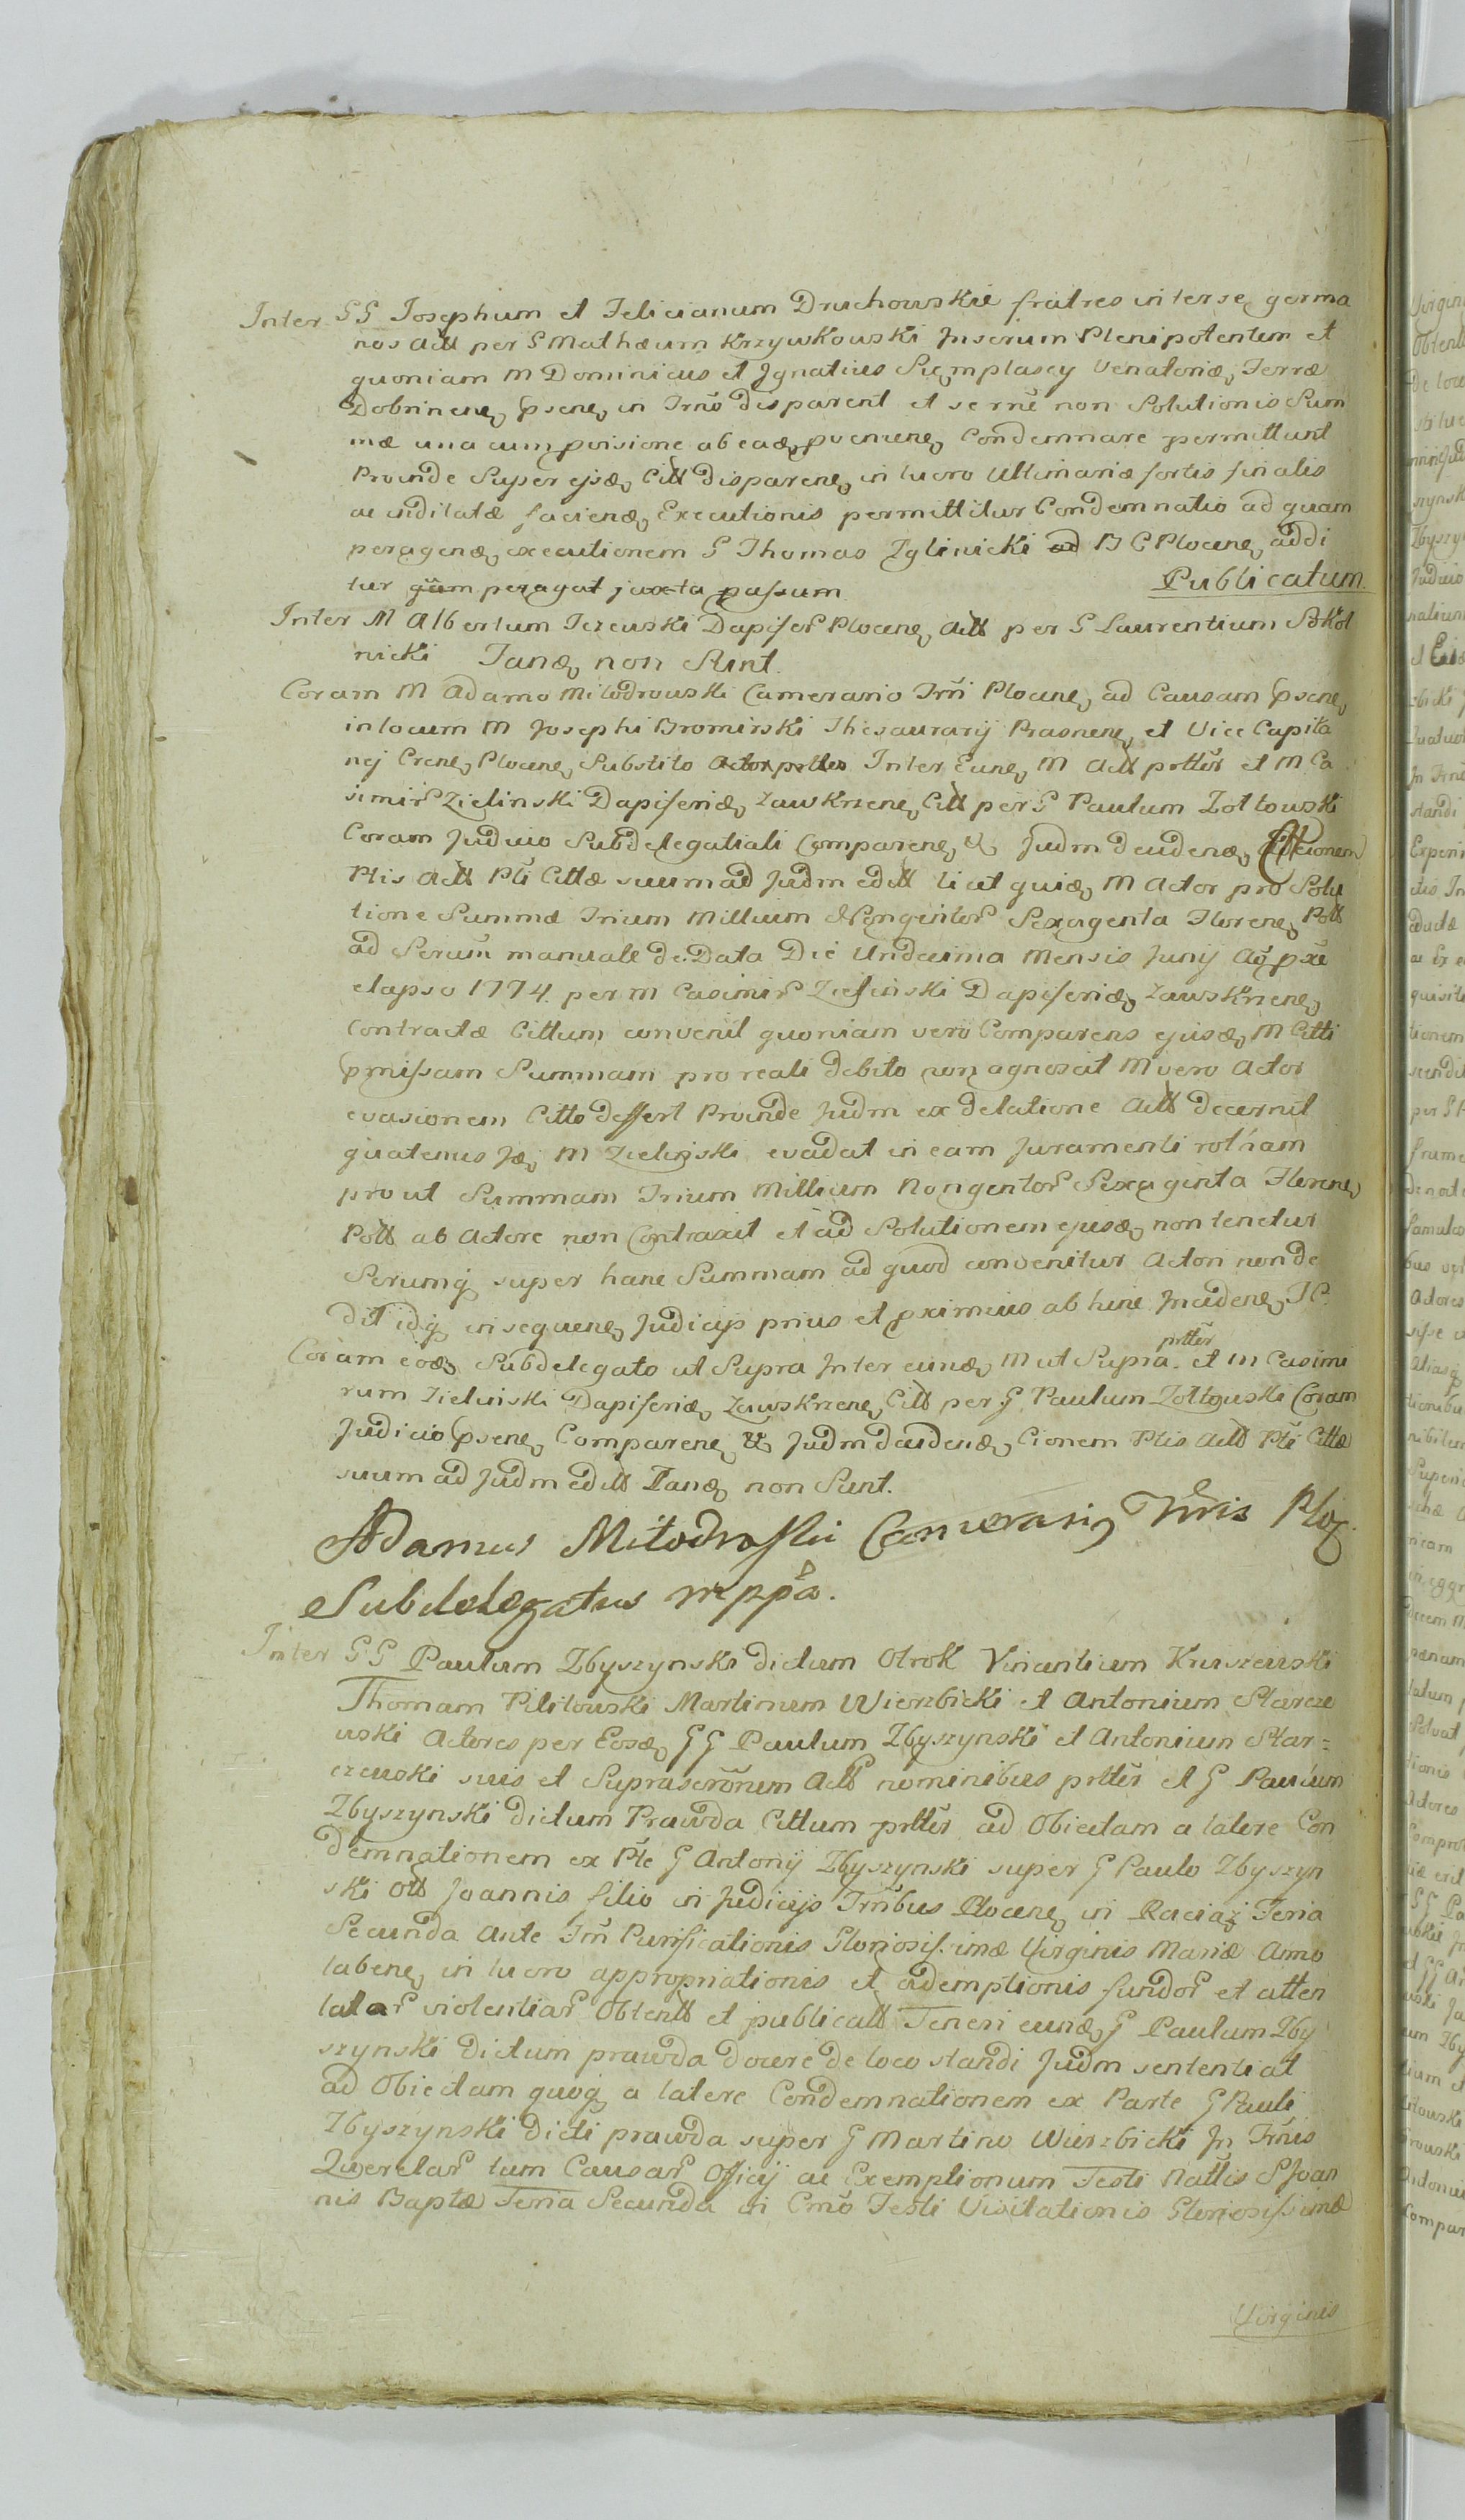 Inter GG Josephum et Felicianum Druchowskie fratres inter se germa
nos Actt per G Mathæum Krzywkowski Juserum Plenipotentem et
quoniam M Dominicus et Ignatius Venatoriæ Terræ
Dobrinen psen in Trno disparent et se rne non Solutionis Sum
mæ una cum pvisione ab eade pvenien Condemnare permittunt
Proinde Super ejsde Citt disparen in lucro Ultimariæ fortis finalis
ac inditatæ faciend Executionis permittitur Condemnatio ad quam
peragend executionem G Thomas Zglinicki ad B C Plocen addi
tur qum peragat juxta passum Publicatum
Inter M Albertum Jezewski Dapifer Plocen Actt per G Laurentium Sokol
nicki Tand non Sunt.
Coram M Adamo Milodrowski Camerario Trri Plocen ad Causam psen
in locum M Josephi Bromirski Thesaurarij Prasnen et Vice Capita
nej Cren Plocen Substito Actor prttes Inter Eund M Actt prtter et M Ca
simir Zielinski Dapiferid Zawkrzen Citt per G Paulum Zoltowski
Coram Judicio Subdelegatiali Comparen & Judm decidend Citationem
Ptis Actt Pti Cittæ suum ad Judm editt licet quid M Actor pro Solu
tione Summæ Trium Millium Nongentor Sexaginta Floren Poll
ad Scrum manuale de Data Die Undecima Mensis Junij Ao pxe
elapso 1774. per M Casimir Zielinski Dapiferid Zawskrzen
Contractæ Cittum convenit quoniam vero Comparens ejusd M Citti
pmissam Summam pro reali debito non agnoscit M vero Actor
evasionem Citto deffert Proinde Judm ex delatione Actt decernit
quatenus Jd M Zielinski evadat in eam Juramenti rotham
prout Summam Trium Millium Nongentor Sexaginta Floren
Poll ab Actore non Contraxit et ad Solutionem ejusd non tenetur
Scrumq super hanc Summam ad quod convenitur Actori non de
dit idq in sequen Judicijs prius et pximius ab hinc Inciden J C.
Coram eod Subdelegato ut Supra Inter eund M ut Supra prtter et M Casimi
rum Zielinski Dapiferid Zawskrzen Citt per G Paulum Zoltowski Coram
Judicio psen Comparen & Judm decidend Cionem Ptis Actt Pti Cittæ
suum ad Judm editt Tand non Sunt.
Adamus Milodroski Camerariq Trris Ploc.
Subdelegatus mppa.
Inter GG Paulum Zbyszynski dictum Otrok Vincentium Kruszewski
Thomam Pilitowski Martinum Wierzbicki et Antonium Starcze
wski Actores per Eosd GG Paulum Zbyszynski et Antonium Star=
czewski suis et Suprascronem Actt nominibus prtter et G Paulum
Zbyszynski dictum Prawda Cittum prtter ad Obiectam a latere Con
demnationem ex Pte G Antonij Zbyszynski super G Paulo Zbyszyn
ski Ott Joannis filio in Judicijs Trribus Plocen in Raciaz Feria
Secunda Ante Fm Purificationis Gloriosis.imæ Virginis Mariæ Anno
laben in lucro appropriationis et ademptionis fundor et atten
tatar violentiar Obtentt et publicatt Teneri eund G Paulum Zby
szynski dictum prawda docere de loco standi Judm sententiat
ad Obiectam quoq a latere Condemnationem ex Parte G Pauli
Zbyszynski dicti prawda super G Martino Wierzbicki In Trnis
Querelar tum Causar Officij ac Exemptionum Festi Nattis S Joan
nis Baptæ Feria Secunda in Cmo Festi Visitationis Gloriosissimæ
Virginis